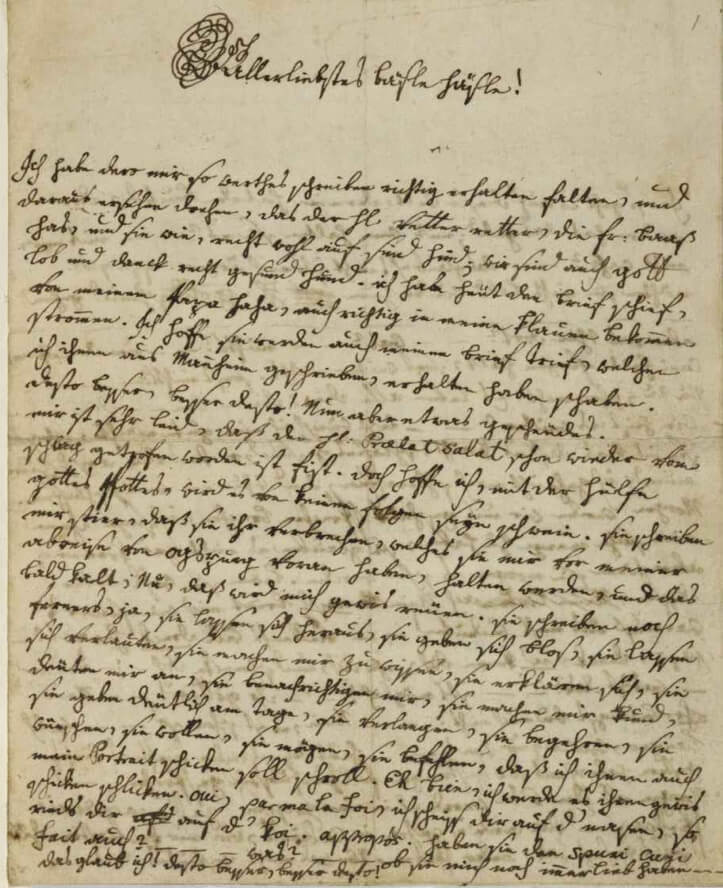 1
Allerliebstes bäsle häsle!
Ich habe dero mir so werthes schreiben richtig erhalten falten, und
daraus ersehen drehen, das der H: vetter retter, die fr: baaß
has, und sie wie, recht wohl auf sind hind; wir sind auch gott
lob und danck recht gesund hund. ich habe heüt den brief schief,
von meinem Papa haha, auch richtig in meine klauen bekommen
strommen. Ich hoffe sie werden auch meinen brief trief, welchen
ich ihnen aus Manheim geschrieben, erhalten haben schaben.
desto besser, besser desto! Nun aber etwas gescheüdes.
mir ist sehr leid, daß der H: Prælat Salat schon wieder vom
schlag getrofen worden ist fist. doch hoffe ich, mit der hülfe
gottes spottes, wird es von keinen folgen seyn schwein. sie schreiben
mir stier, daß sie ihr verbrechen, welches sie mir vor meiner
abreise von ogspurg voran haben, halten werden, und das
bald kalt; Nu, daß wird mich gewis reüen. sie schreiben noch
ferners, ja, sie lassen sich heraus, sie geben sich blos, sie lassen
sich verlauten, sie machen mir zu wissen, sie erklären sich, sie
deüten mir an, sie benachrichtigen mir, sie machen mir kund,
sie geben deütlich am tage, sie verlangen, sie begehren, sie
wünschen, sie wollen, sie mögen, sie befehlen, daß ich ihnen auch
mein Portrait schicken soll schroll. Eh bien, ich werde es ihnen gewis
schicken schlicken. Oui, par ma la foi, ich scheiss dir auf d' nasen, so
rinds dir auf d' koi. appropós. haben sie den spuni cuni
fait auch? --- was? --- ob sie mich noch immer lieb haben ---
das glaub ich! desto besser, besser desto!